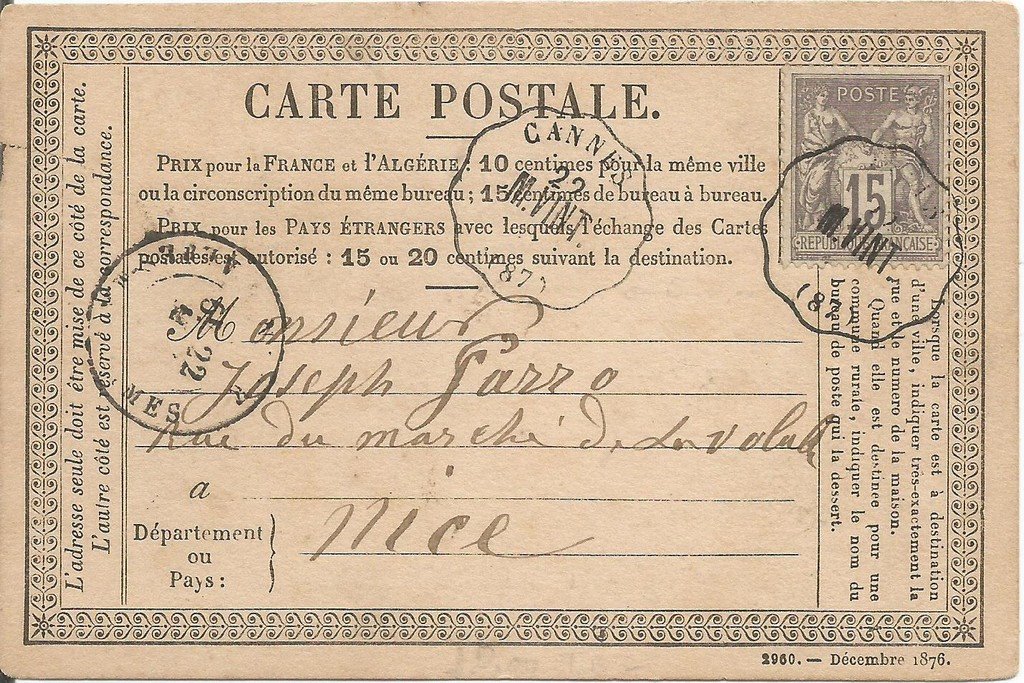 CARTE POSTALE.
PRIX pour la FRANCE et l'ALGÉRIE : 10 centimes pour la même ville
ou la circonscription du même bureau ; 15 centimes de bureau à bureau.
PRIX pour les PAYS ÉTRANGERS avec lesquels l'échange des Cartes
postales est autorisé : 15 ou 20 centimes suivant la destination.
POSTE
15
REPUBLIQUE FRANÇAISE
CANNES
22
M.VINT.
(87)
M.VINT.
(87)
22
MES
Monsieur
Joseph
Rue du marché de la
a
Nice
Département
ou
Pays :
L'adresse seule doit être mise de ce côté de la carte.
L'autre côté est réservé à la correspondance.
Lorsque la carte est à destination
d'une ville, indiquer très-exactement la
rue et le numero de la maison.
Quand elle est destinée pour une
commune rurale, indiquer le nom du
bureau de poste qui la dessert.
2960. — Décembre 1876.